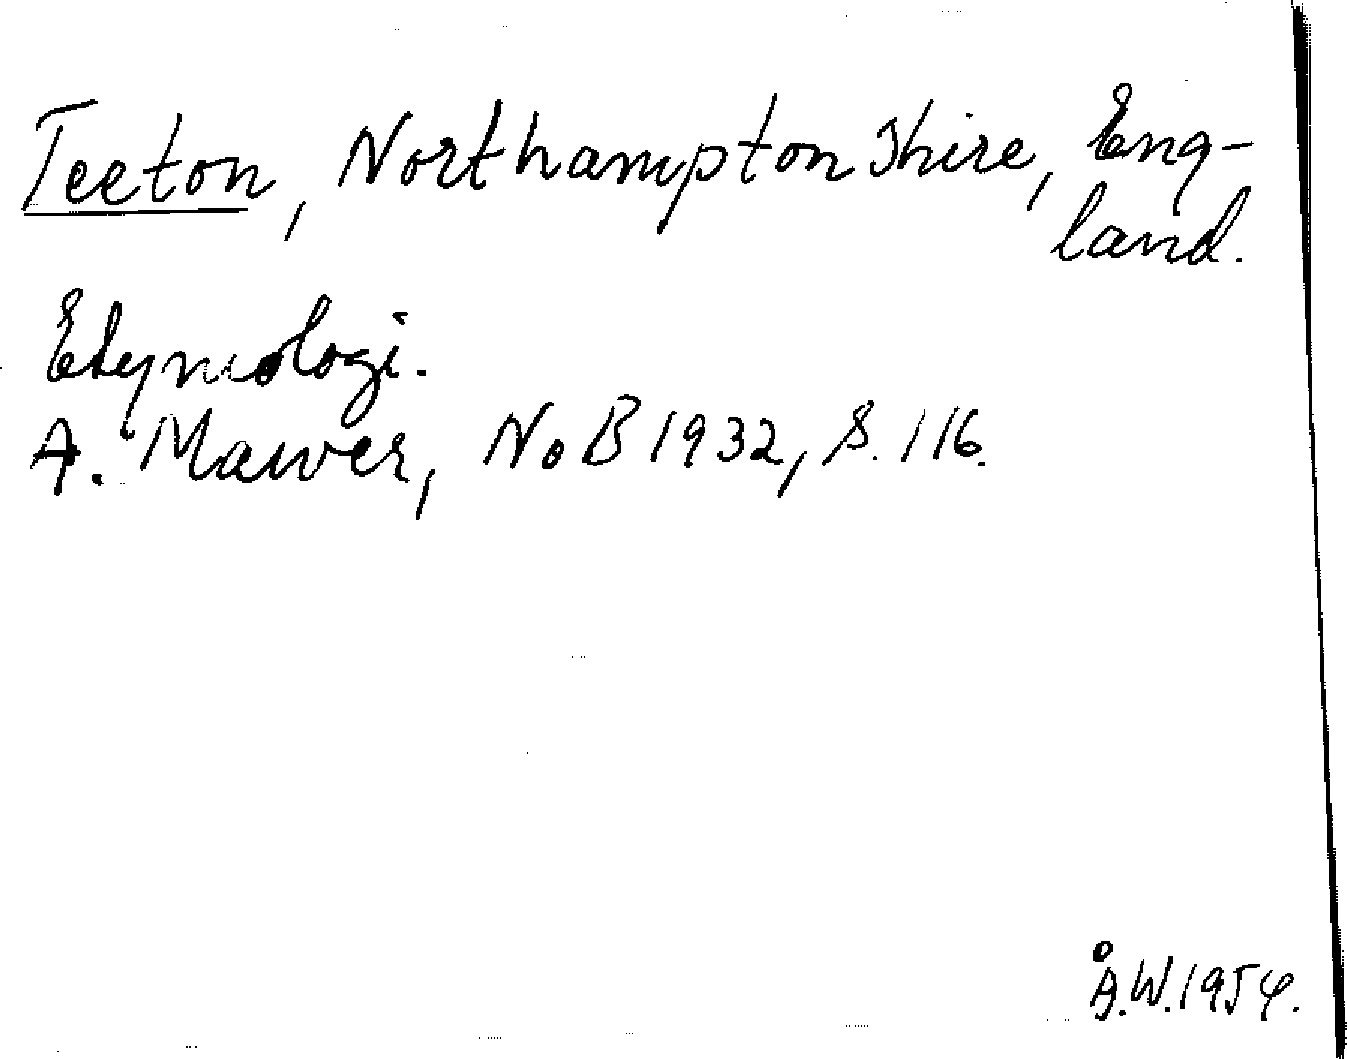 Teeton, Northamptonshire, Eng-
land.
Etymologi.
A. Mawer, NoB 1932, S. 116.
Å.W. 1954.